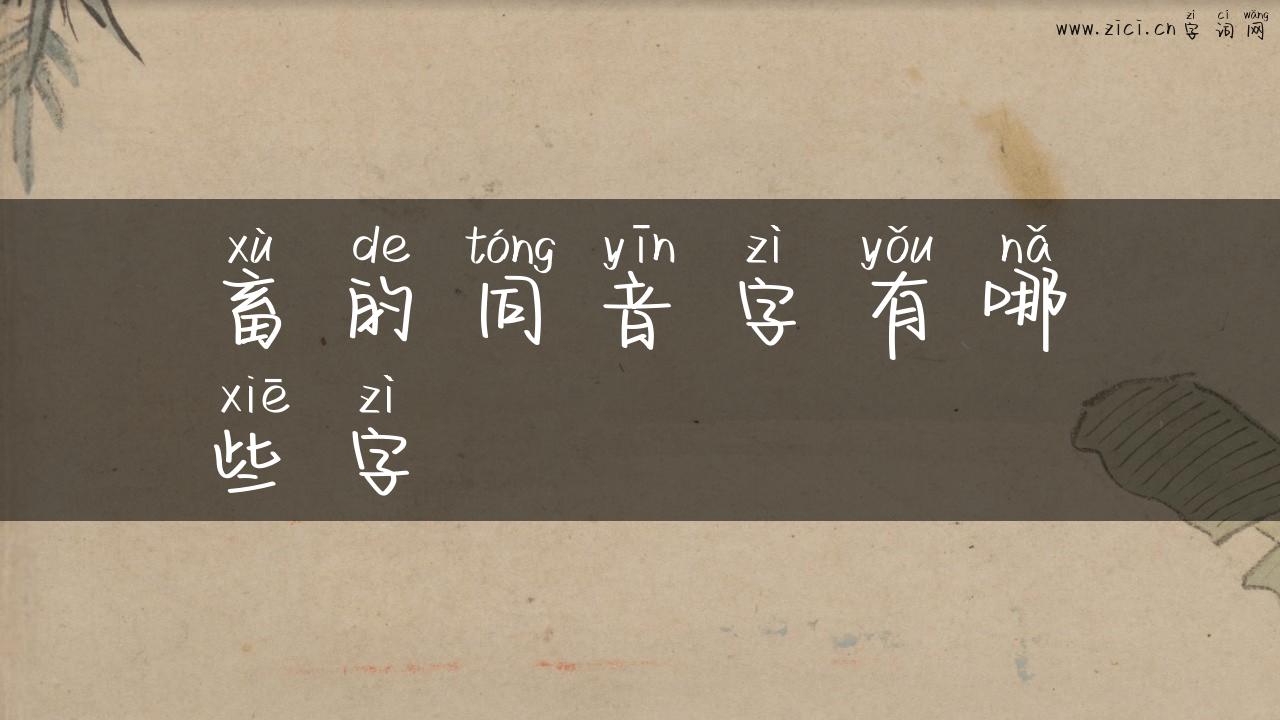 zì cí wǎng
www.zici.cn 字词网
xù de tóng yīn zì yǒu nǎ
畜的同音字有哪
xiē zì
些字